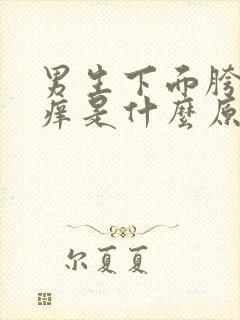 男生下而胯
痒是什麽原
尔夏夏